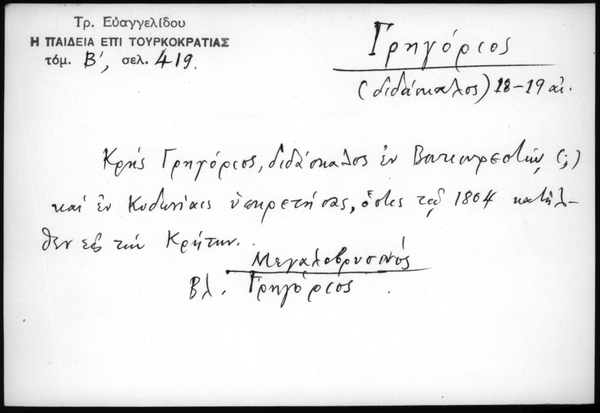 Τρ. Εὐαγγελίδου
Η ΠΑΙΔΕΙΑ ΕΠΙ ΤΟΥΡΚΟΚΡΑΤΙΑΣ
τόμ. Β', σελ. 419.
Γρηγόριος
(διδάσκαλος) 18-19 αἰ.
Κρής Γρηγόριος, διδάσκαλος ἐν Βουκουρεστίῳ (;)
καί ἐν Κυδωνίαις ὑπηρετήσας, ὅστις τῷ 1804 κατῆλ-
θεν εἰς τήν Κρήτην.
Μεγαλοβρυσινός
Βλ. Γρηγόριος